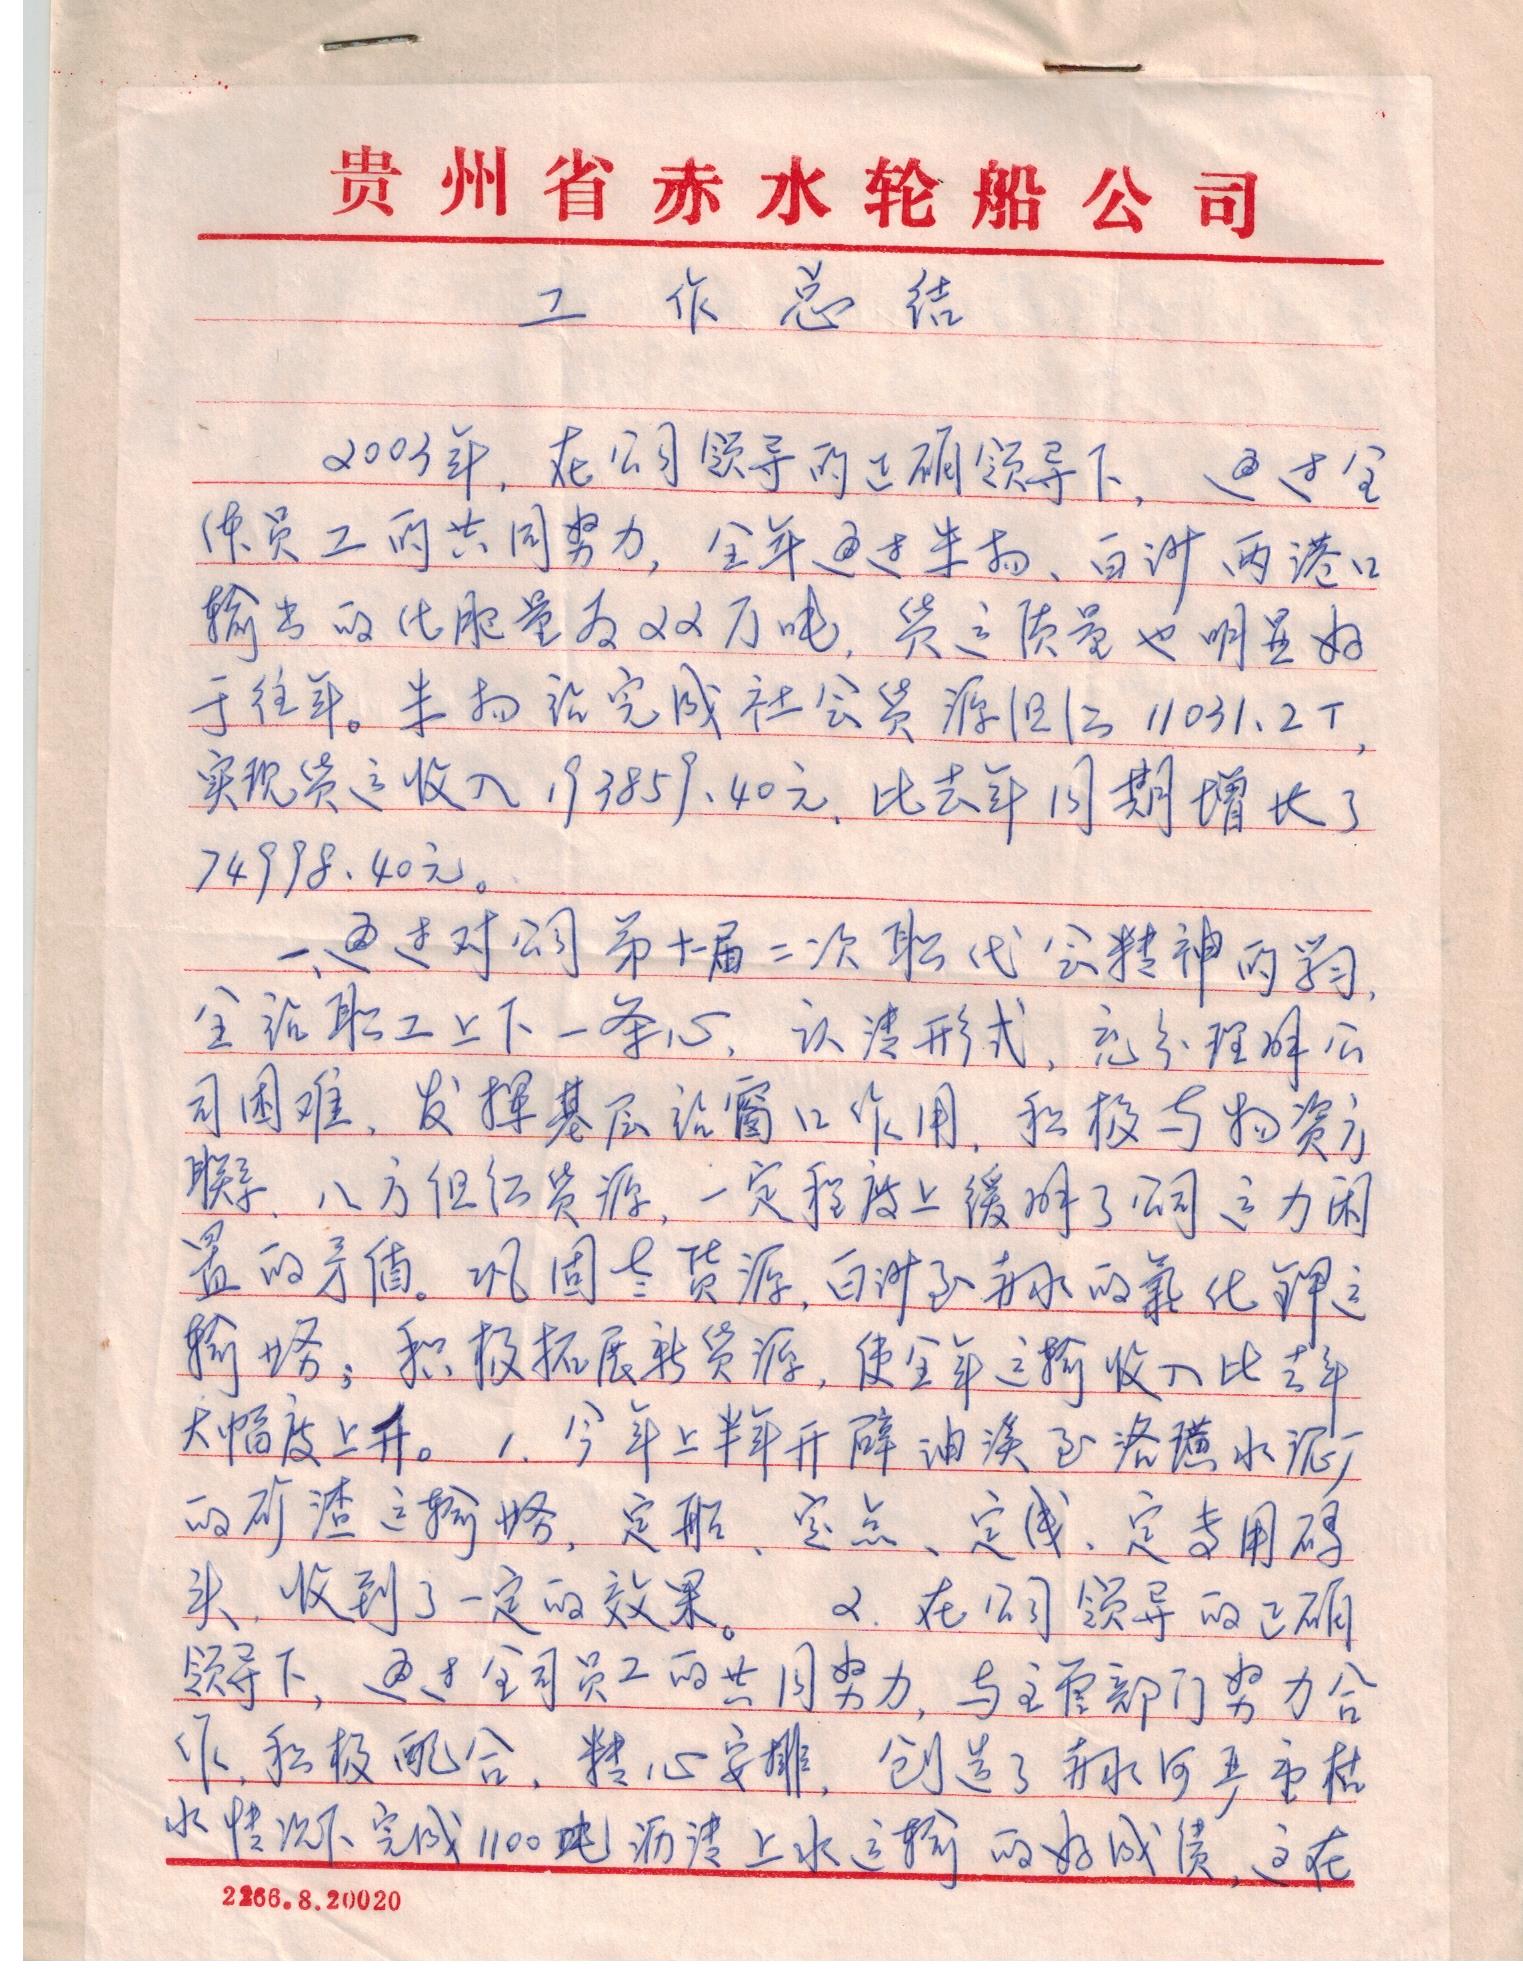 贵州省赤水轮船公司
工作总结
2003年，在公司领导的正确领导下，通过全
体员工的共同努力，全年通过朱扬、白沙两港口
输出的化肥量为22万吨，货运质量也明显好
于往年。朱扬站完成社会货源组织11031.2T，
实现货运收入193859.40元，比去年同期增长了
74998.40元。
一、通过对公司第十届二次职代会精神的学习，
全站职工上下一条心，认清形式，充分理解公
司困难，发挥基层站窗口作用，积极与物资方
联系，八方组织货源，一定程度上缓解了公司运力闲
置的矛盾。巩固老货源，白沙至赤水的氯化钾运
输业务；积极拓展新货源，使全年运输收入比去年
大幅度上升。1.今年上半年开辟油溪至洛璜水泥厂
的矿渣运输业务，定船、定点、定线、定专用码
头，收到了一定的效果。2.在公司领导的正确
领导下，通过全司员工的共同努力，与主管部门努力合
作，积极配合，精心安排，创造了赤水河严重枯
水情况下完成1100吨沥清上水运输的好成绩，这在
2266.8.20020